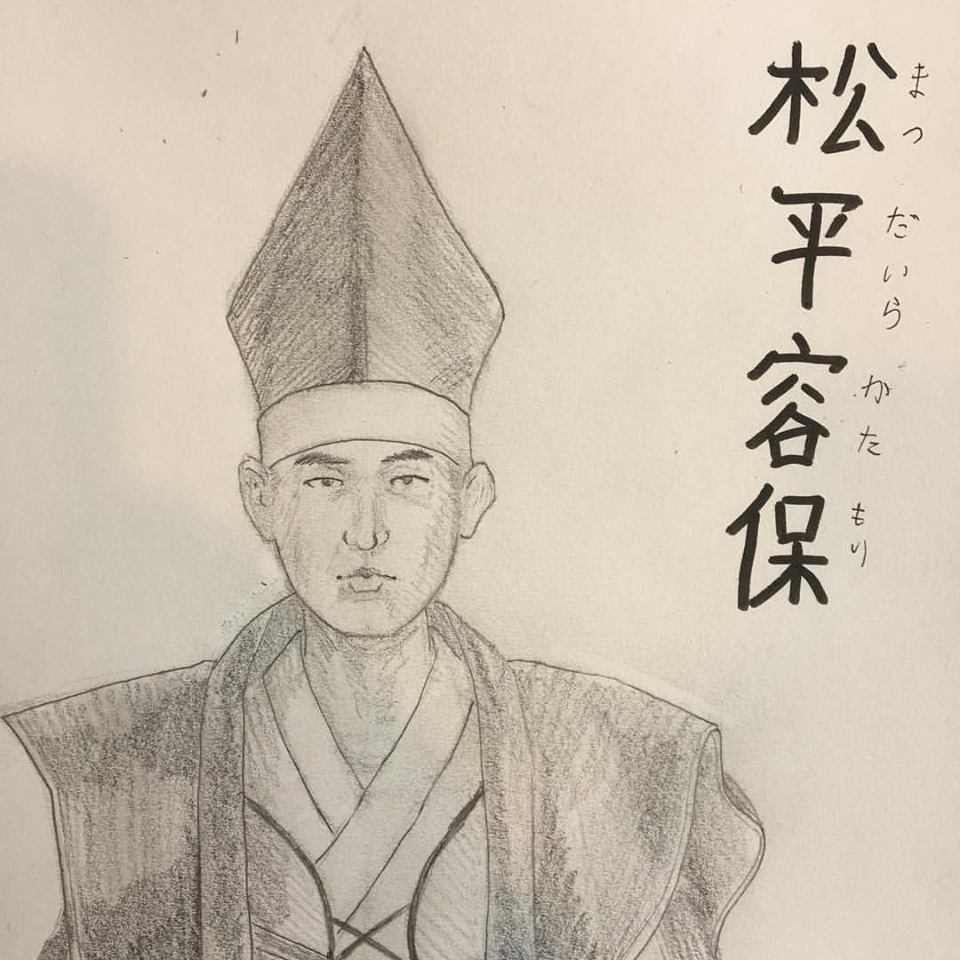 松平容保
まつだいらかたもり